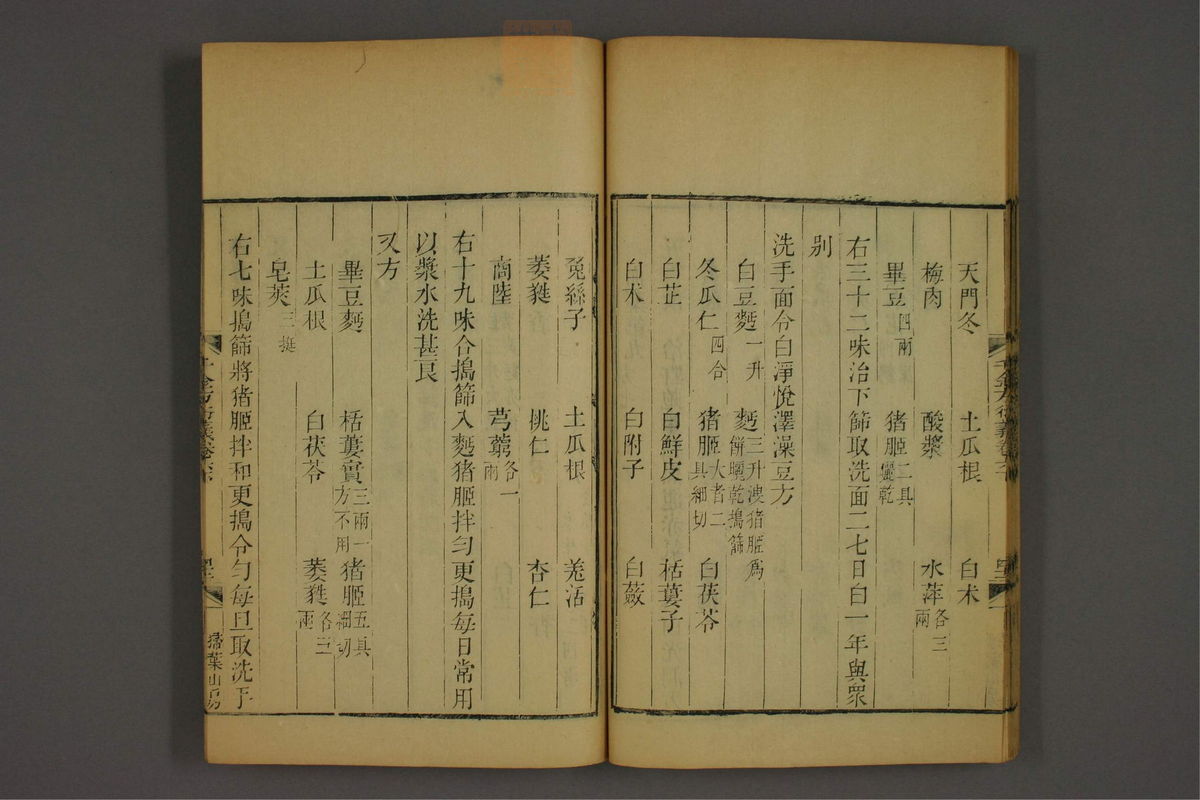 天門冬　土瓜根　白朮
梅肉　酸漿　水萍各三兩
畢豆四兩　猪胵二具曬乾
右三十二味治下篩取洗面二七日白一年與衆
别
洗手面令白淨悅澤澡豆方
白豆麪一升　麪三升溲猪胵爲餅曬乾搗篩
冬瓜仁四合　猪胵大者二具細切　白茯苓
白芷　白鮮皮　栝蔞子
白朮　白附子　白蘞
兔絲子　土瓜根　羗活
萎蕤　桃仁　杏仁
商陸　芎藭各一兩
右十九味合搗篩入麪猪胵拌勻更搗每日常用
以漿水洗甚良
又方
畢豆麪　栝蔞實三兩一方不用　猪胵五具細切
土瓜根　白茯苓　萎蕤各三兩
皂莢三挺
右七味搗篩將猪胵拌和更搗令勻每旦取洗手
千金方衍義卷六
掃葉山房